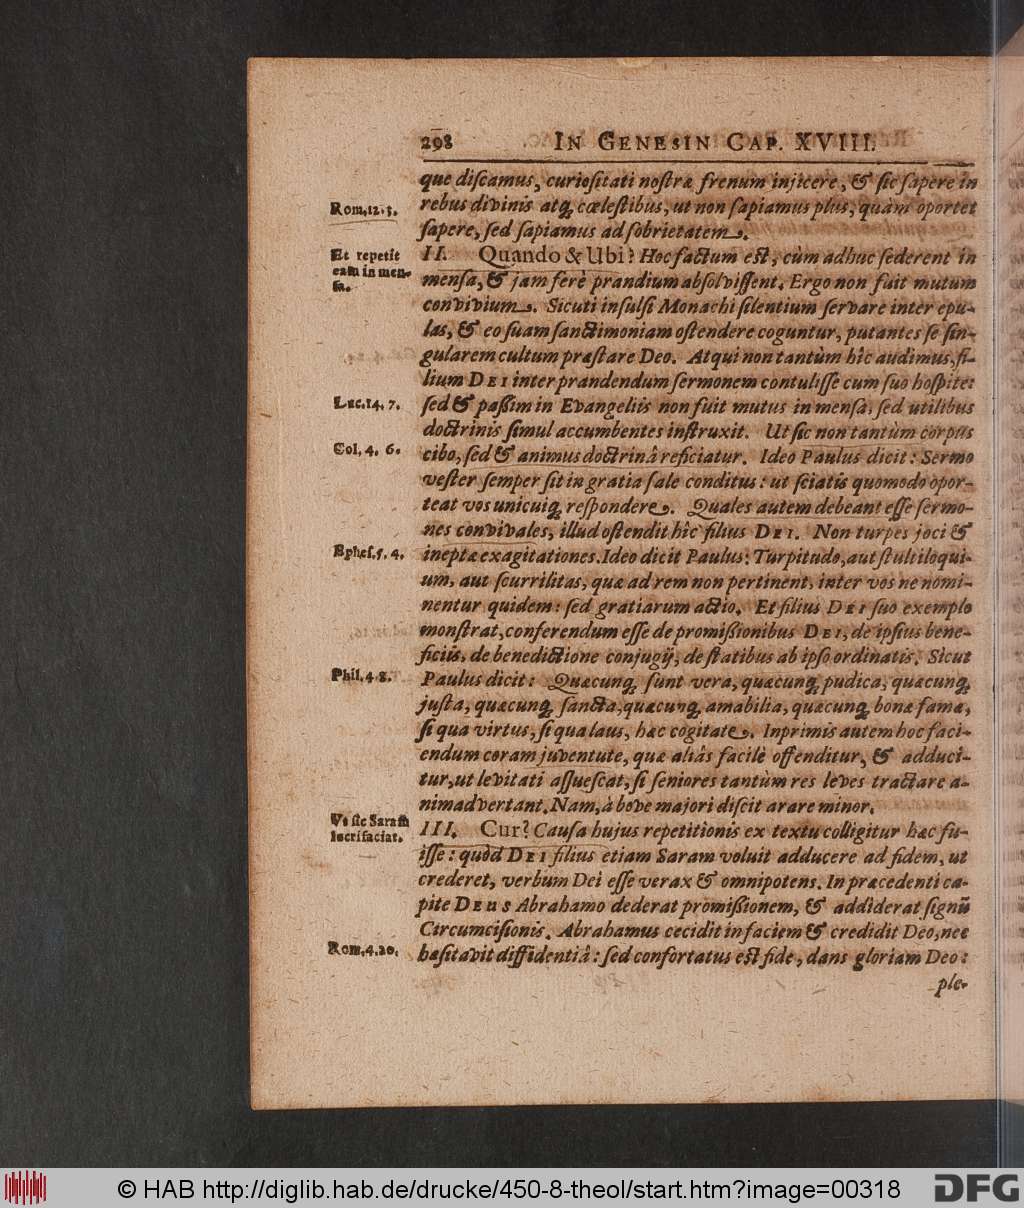 298 IN GENESIN CAP. XVIII.
que diſcamus, curioſitati noſtræ frenum injicere, & ſic ſapere in
Rom.12.3.
rebus divinis atq; cœleſtibus, ut non ſapiamus plus, quàm oportet
ſapere, ſed ſapiamus ad ſobrietatem.
Et repetit
eam in men-
ſa.
II. Quando & Ubi? Hoc factum eſt, cùm adhuc ſederent in
menſa, & jam ferè prandium abſolviſſent. Ergo non fuit mutum
convivium. Sicuti inſulſi Monachi ſilentium ſervare inter epu-
las, & eo ſuam ſanctimoniam oſtendere coguntur, putantes ſe ſin-
gularem cultum præſtare Deo. Atqui non tantùm hîc audimus, fi-
lium DEI inter prandendum ſermonem contuliſſe cum ſuo hoſpite:
Luc.14. 7.
ſed & paßim in Evangeliis non fuit mutus in menſa, ſed utilibus
doctrinis ſimul accumbentes inſtruxit. Ut ſic non tantùm corpus
Col. 4. 6.
cibo, ſed & animus doctrinâ reficiatur. Ideo Paulus dicit: Sermo
veſter ſemper ſit in gratia ſale conditus: ut ſciatis quomodo opor-
teat vos unicuiq; reſpondere. Quales autem debeant eſſe ſermo-
nes convivales, illud oſtendit hîc filius DEI. Non turpes joci &
Epheſ.5. 4.
ineptæ exagitationes. Ideo dicit Paulus: Turpitudo, aut ſtultiloqui-
um, aut ſcurrilitas, quæ ad rem non pertinent, inter vos ne nomi-
nentur quidem: ſed gratiarum actio. Et filius DEI ſuo exemplo
monſtrat, conferendum eſſe de promißionibus DEI, de ipſius bene-
ficiis, de benedictione conjugij, de ſtatibus ab ipſo ordinatis. Sicut
Phil.4 8.
Paulus dicit: Quæcunq; ſunt vera, quæcunq; pudica, quæcunq;
juſta, quæcunq; ſancta, quæcunq; amabilia, quæcunq; bonæ famæ,
ſi qua virtus, ſi qua laus, hæc cogitate. Inprimis autem hoc faci-
endum coram juventute, quæ aliàs facilè offenditur, & adduci-
tur, ut levitati aſſueſcat, ſi ſeniores tantùm res leves tractare a-
nimadvertant. Nam, à bove majori diſcit arare minor.
Ut ſic Saram
lucrifaciat.
III. Cur? Cauſa hujus repetitionis ex textu colligitur hæc fu-
iſſe: quòd DEI filius etiam Saram voluit adducere ad fidem, ut
crederet, verbum Dei eſſe verax & omnipotens. In præcedenti ca-
pite DEUS Abrahamo dederat promißionem, & addiderat ſignũ
Circumciſionis. Abrahamus cecidit in faciem & credidit Deo, nec
Rom.4.20.
hæſitavit diffidentiâ: ſed confortatus eſt fide, dans gloriam Deo:
ple-
© HAB http://diglib.hab.de/drucke/450-8-theol/start.htm?image=00318
DFG